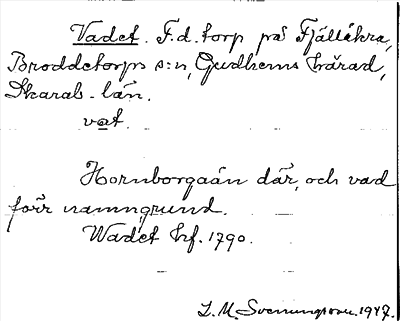 Vadet. F.d. torp på Fjällåkra,
Broddetorps s:n, Gudhems härad,
Skarab. län.
vat.
Hornborgaån där, och vad
förr namngrund.
Wadet hf. 1790.
L. M. Svenungsson. 1947.